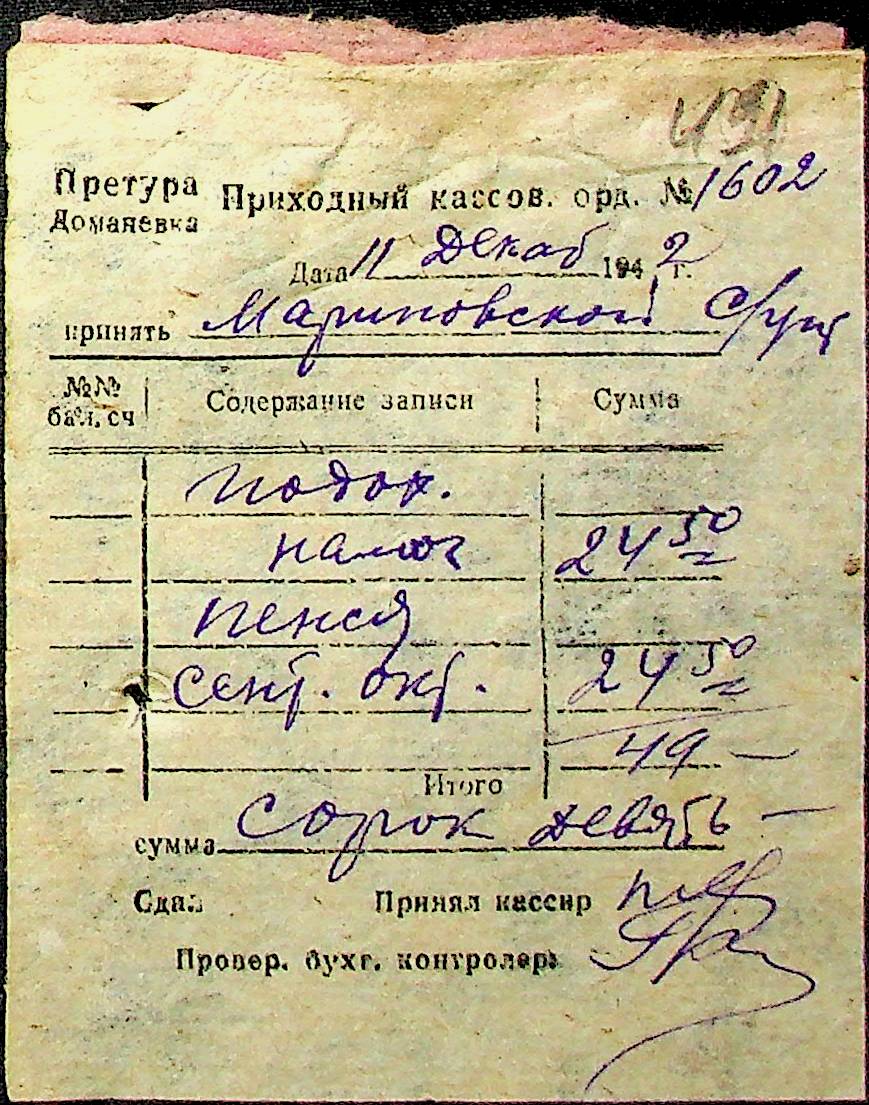 431
Претура Приходный кассов. орд. № 1602
Доманевка
Дата 11 Декаб 1942 г.
принять Мариновской
№№ бал. сч Содержание записи Сумма
подох.
налог 24 50
пенся
сент. окт. 24 50
49 —
Итого
сумма Сорок девять —
Сдал Принял кассир
Провер. бухг. контролер: